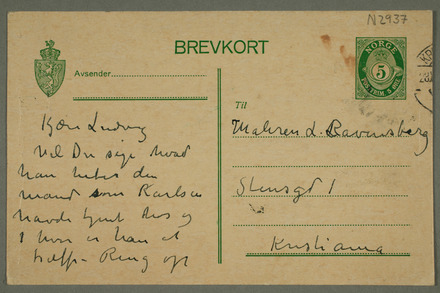 N2937
BREVKORT
NORGE
5
Avsender
Til
Kjære Ludvig
Vil Du sige hvad
han heter den
mand som Karlsen
havde tjent hos og
hvor er han at
træffe - Ring op
Maleren L. Ravensberg
Stensgd 1
Kristiania